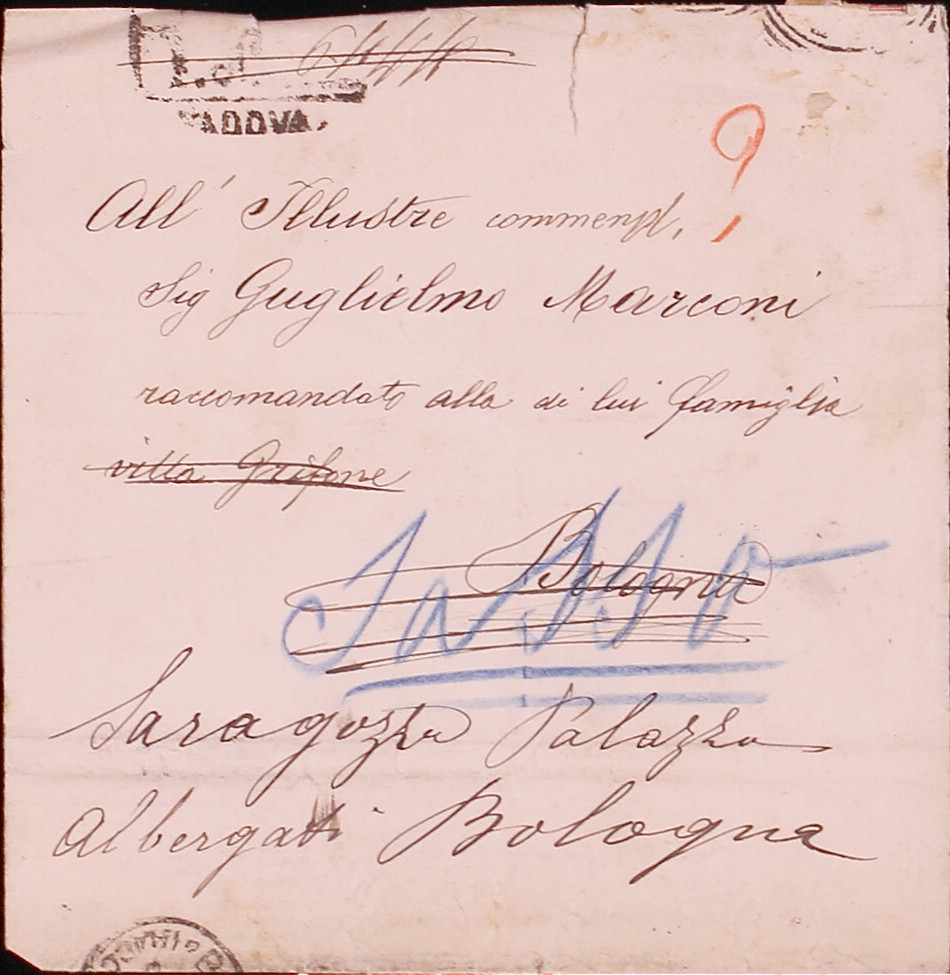 PADOVA
All' Illustre
Sig Guglielmo Marconi
raccomandato alla di lui famiglia
villa Grifone
Bologna
Sasso
Saragozza Palazzo
Albergati Bologna